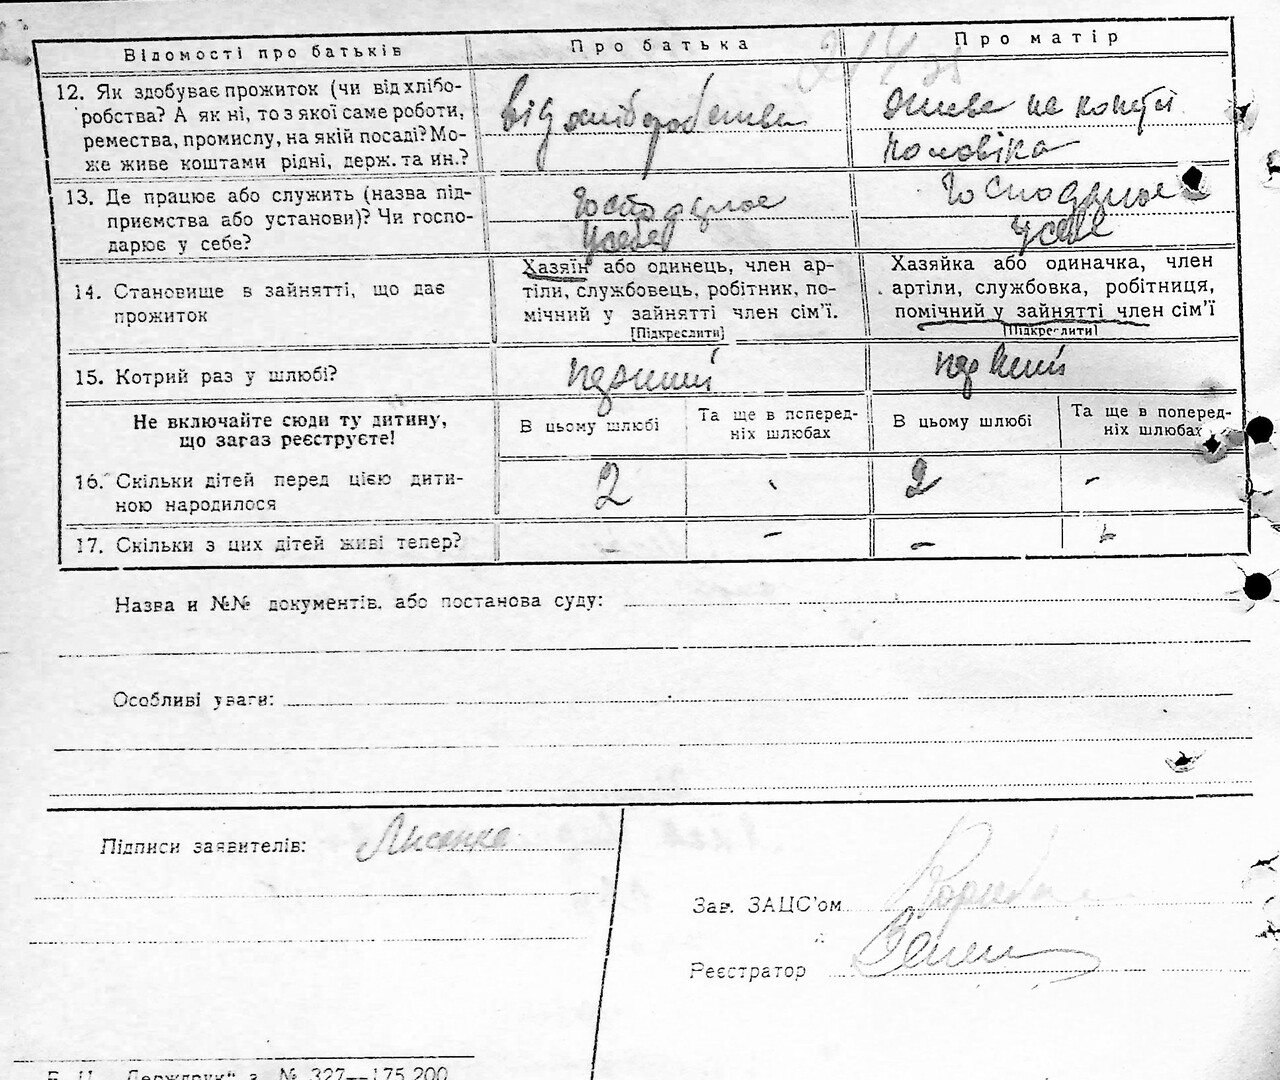 Відомості про батьків
Про батька
Про матір
12. Як здобуває прожиток (чи від хлібо-
робства? А як ні, то з якої саме роботи,
ремества, промислу, на якій посаді? Мо-
же живе коштами рідні, держ. та ин.?
від хліборобства
живе на кошти
чоловіка
13. Де працює або служить (назва під-
приємства або установи)? Чи госпо-
дарює у себе?
господарює
у себе
господарює
у себе
14. Становище в зайнятті, що дає
прожиток
Хазяїн або одинець, член ар-
тіли, службовець, робітник, по-
мічний у зайнятті член сім'ї.
[Підкреслити]
Хазяйка або одиначка, член
артіли, службовка, робітниця,
помічний у зайнятті член сім'ї
[Підкреслити]
15. Котрий раз у шлюбі?
перший
перший
Не включайте сюди ту дитину,
що зараз реєструєте!
В цьому шлюбі
Та ще в поперед-
ніх шлюбах
В цьому шлюбі
Та ще в поперед-
ніх шлюбах
16. Скільки дітей перед цією дити-
ною народилося
2
2
-
17. Скільки з цих дітей живі тепер?
-
-
-
Назва и №№ документів, або постанова суду:
Особливі уваги:
Підписи заявителів: Лисенко
Зав. ЗАЦС'ом
Реєстратор
Держдрук" з. № 327—175.200